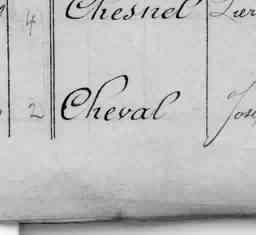 4 Chesnel
2 Cheval